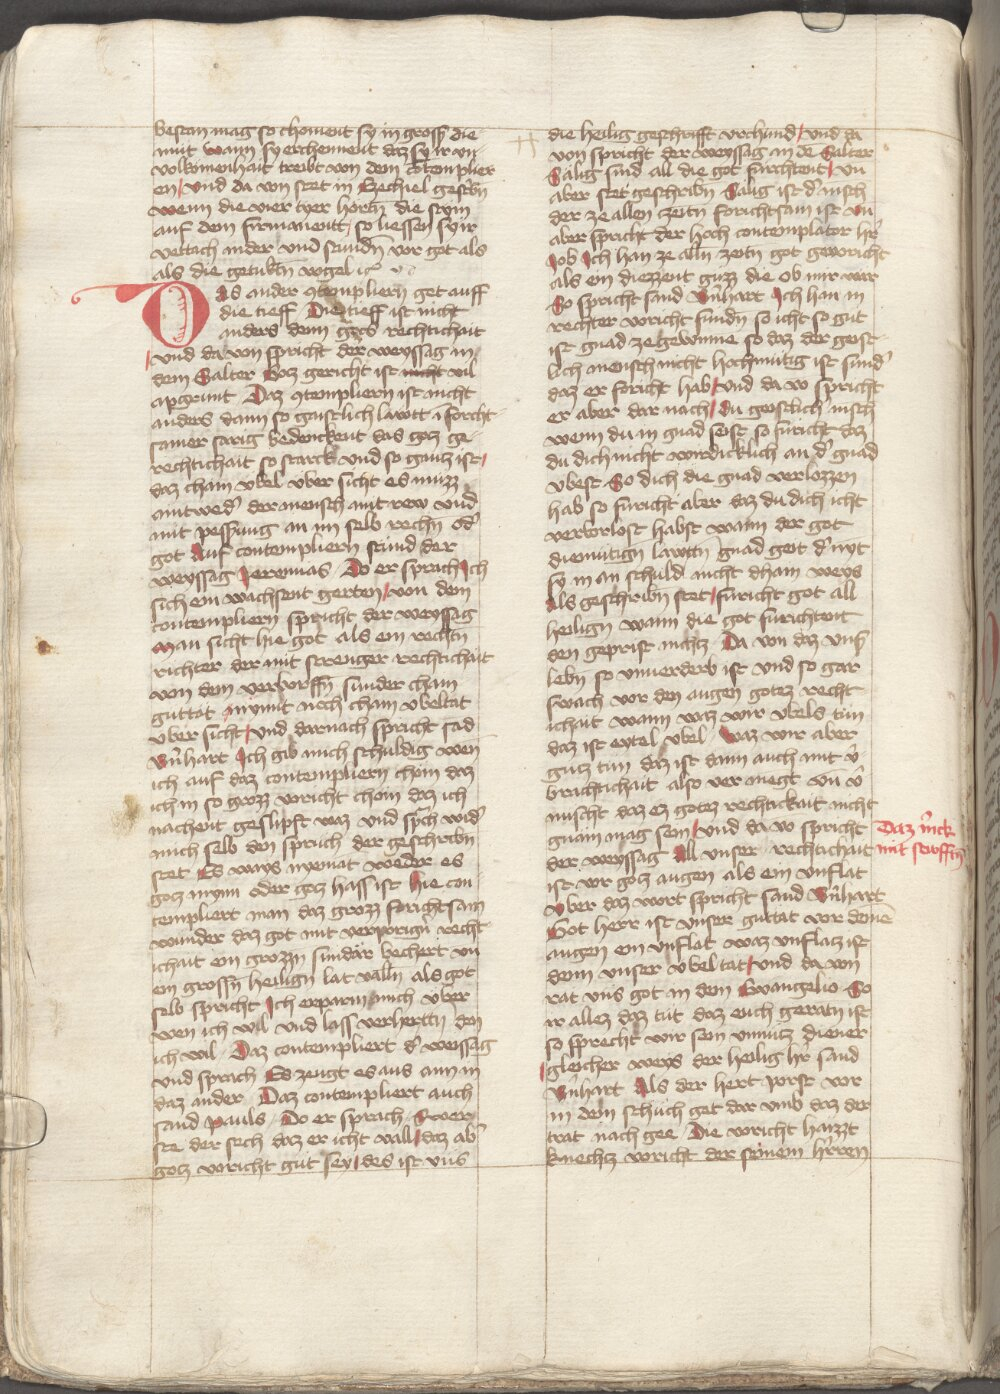 bestan mag so choment sy in gross die
mut wann sy erchennent daz sy ir vn
volkömenhait treibt von dem 9templier
en / vnd da von stet in Ezechiel geschn
wenn die vier tyer hortn die stym
auf dem firmanentt so liessen sy ir
vettach nider vnd stundn vor got als
als die getukcn vogel
Das ander 9templiern get auff
die tieff Die tieff ist nicht
anders denn gocz rechtichait
vnd da von spricht der weyssag in
dem Salter Gocz gericht ist nicht vil
apgrunt Daz 9templiern ist nicht
anders dann so gaistlich lawtt i forcht
samer sarig bedenckent das gocz ge
rechtichait so starck vnd so gancz ist /
daz cham vbel vber sicht es muzz
aintwed' der mensch mit rew vnd
mit pessrung an im selb rechn od'
got Auf contempliern stund der
weyssag Jeremias Do er sprach Ich
sich ein wachsent gerten / von dem
contempliern spricht der weyssag
Man sicht hie got als ein rechtn
richter der mit strenger rechtichait
von dem verworffn sunder cham
guttat nymit noch cham vbeltat
vber sicht / vnd darnach spricht sad
W'nhart Ich gib mich schuldig wen
ich auf daz contempliern chöm daz
ich in so grozz voricht chom daz ich
nachent geslipft waz vnd sprch wid'
mich selb den spruch der geschribn
stet Es ways nyemat weder es
gocz mynn oder gocz hass ist Hie con
templiert man daz grozz forichtsam
wunder daz got mit verporign recht
ichait ein grozzn sundär bechert vn
ein grossn heilign lat valln als got
selb spricht Ich erparm mich vber
wen ich wil vnd lass verherttn den
ich wil Daz contempliert d' weissag
vnd sprach Es zeugt es aus aim in
daz ander Daz contempliert auch
sand Pauls Do er sprach Swer
ste der sech daz er icht vall / daz ab'
gocz voricht gut sey / des ist vns
die heilig geschrifft vrchund / vnd da
von spricht der weyssag in de Salter
Sälig sind all die got furchtent / vn
aber stet geschribn Sälig ist d' misch
der ze allen zeitn forichtsam ist vn
aber spricht der hoch contemplator h'r
Job Ich han ze alln zeitn got gevoricht
als ein diezzent guzz die ob mir war
So spricht sand W'nhart Ich han in
rechter voricht fundn so icht so gut
ist gnad ze gewinne so daz der geist
lich mensch nicht hochmutig ist sund'
daz er foricht hab / vnd da vo spricht
er aber dar nach / du geistlich' misch
wenn du in gnad seist so furicht daz
du dich nicht wirdicklich an d' gnad
vbest So dich die gnad verlozzen
hab so furicht aber daz du dich icht
verworlost habst wann der got
diemutign lawttn gnad geit d' nyt
sy in an schuld nicht dham weys
Als geschribn stet / furicht got all
heilign wann die got furichtent
den geprist nichcz Da von daz vns
lebn so vnuerderb ist vnd so gar
swach vor den augen gotez recht
ichait wann waz wir vbels tun
daz ist eytel vbel waz wir aber
gutz tun daz ist dann auch mit v'
brachtichait also ver megt vn v'
mischt daz ez gotez rechtickait nicht
gnäm mag sein / vnd da vo spricht
der weyssag All vnser rechtichait
ist vor gocz augen als ein vnflat
Vber daz wort spricht sand W'nhart
Got herr ist vnser guttat vor deine
augen ein vnflat waz vnflacz ist
denn vnser vbeltat / vnd da von
rat vns got in dem Ewangelio So
ir allez daz tut daz euch geratn ist
so sprecht wir sein vnnucz diener
gleicher weys der heilig h'r sand
W'nhart Als der hert porst vor
in dem schuch get dar vmb daz der
trat nach gee Die voricht haizzt
knechtz voricht der seinem h'rren
Daz m'ck
mit